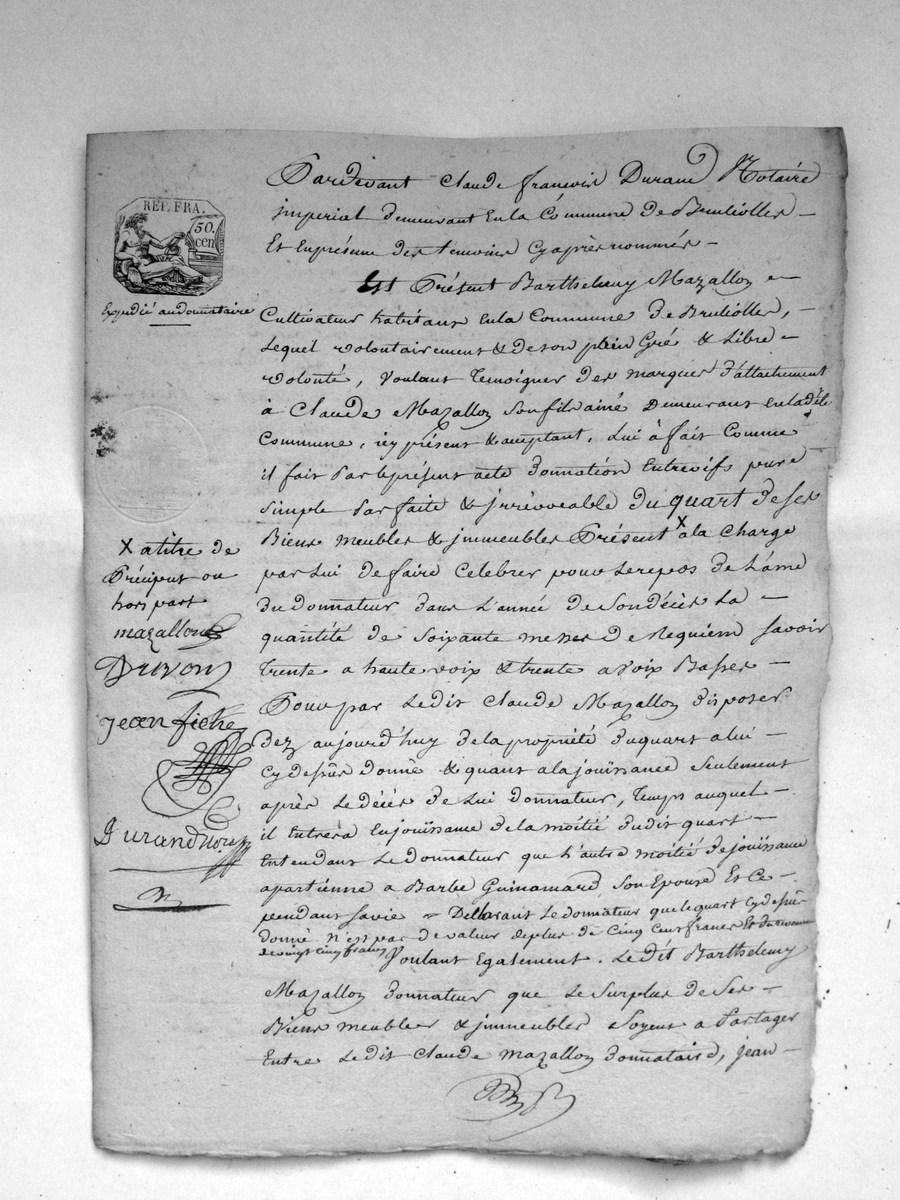 REP. FRA.
50.
cen
Expedié au donnataire
Pardevant Claude françois Durand Notaire
imperial demeurant en la Commune de Brulïolles –
Et en présence des temoins cy après nommés –
Est Présent Barthelemy Mazallon –
Cultivateur habitant en la Commune de Bruliolles, –
Lequel volontairement & de son plein Gré & Libre –
volonté, voulant temoigner des marques d'attachement
à Claude Mazallon son fils ainé demeurant en la dite
Commune, icy présent & acceptant, Lui à fait Comme
il fait Par le présent acte donnation Entrevifs pure
simple parfaite & irrévocable du quart de ses
Biens meubles & immeubles Présent X à la Charge
par Lui de faire Celebrer pour le repos de L'ame
du donnateur dans L'année de son décès La –
quantité de soixante messes de Requiem savoir
trente a haute voix & trente a voix Basses –
Pour par Le dit Claude Mazallon disposer
dez aujourd'huy de la propriété du quart a lui –
cy dessus donné & quant a la joüissance seulement
après Le décès de Lui donnateur, temps auquel –
il Entrera En joüissance de la moitié du dit quart –
Entendant Le donnateur que L'autre moitié de joüissance
apartiénne a Barbe Guinamard son Epouse Et Ce –
pendant sa vie = Déclarant Le donnateur que le quart cy dessus
donné n'est pas de valeur de plus de Cinq Cent francs Et du revenu
de vingt cinq francs Voulant Egalement, Le dit Barthelemy
Mazallon donnateur que Le surplus de ses –
Biens meubles & immeubles soyent a Partager
Entre Le dit Claude Mazallon donnataire, jean –
X a titre de
Préciput ou
hors part
mazallon
Duvon
jean fiche
Durand Nore